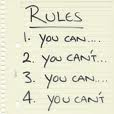 RULES
1. YOU CAN....
2. YOU CAN'T...
3. YOU CAN....
4. YOU CAN'T